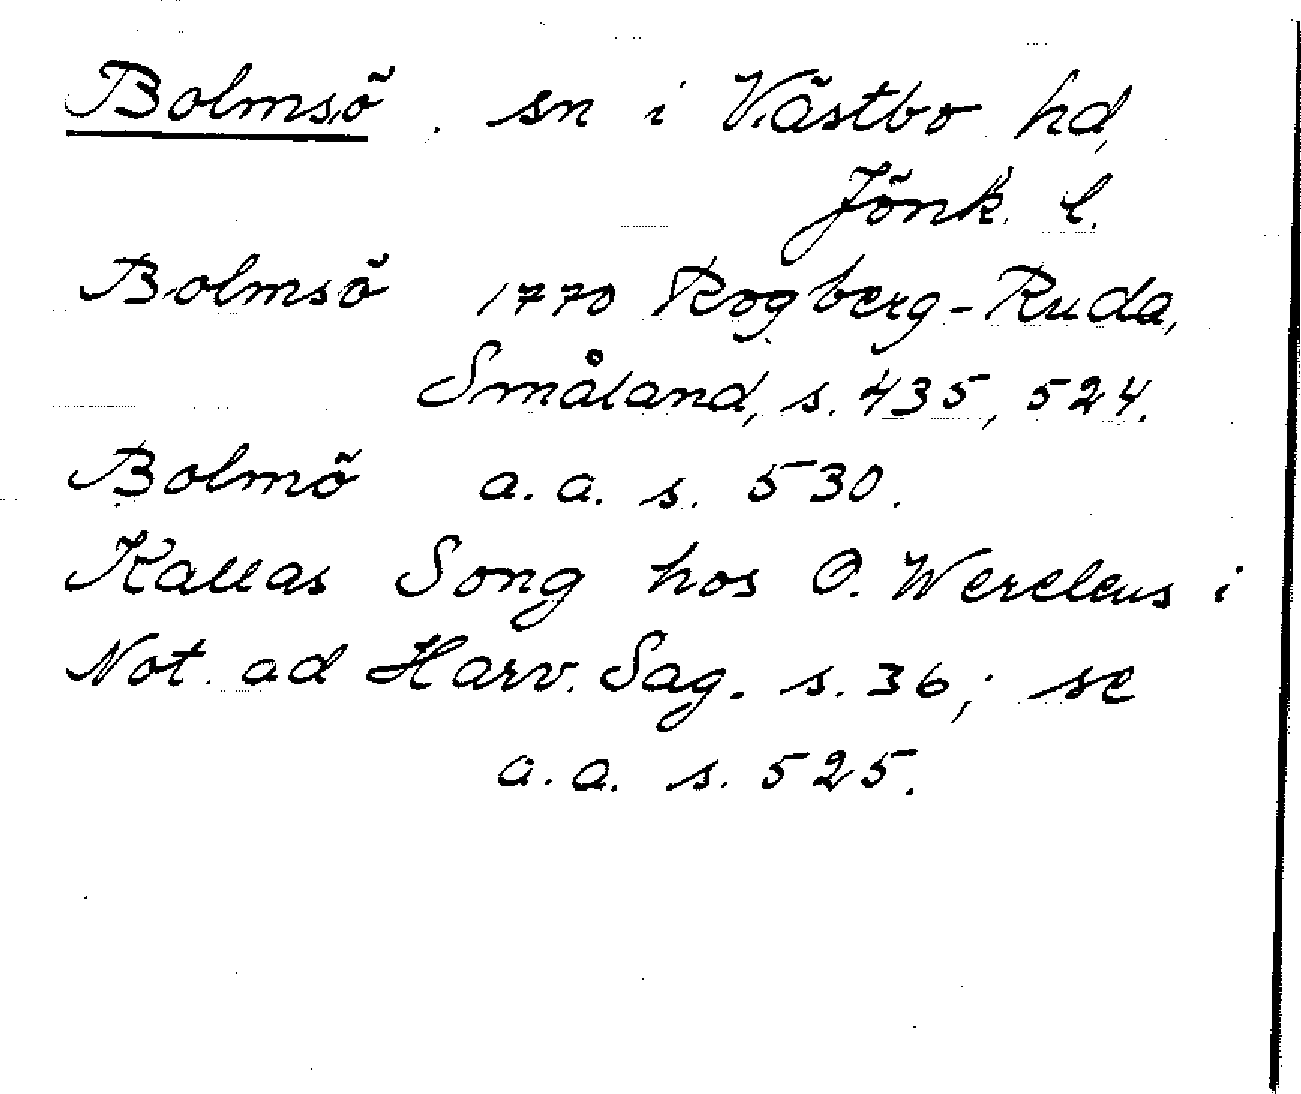 Bolmsö, sn i Västbo hd,
Jönk. l.
Bolmsö 1770 Rogberg-Ruda,
Småland, s. 435, 524.
Bolmö a. a. s. 530.
Kallas Song hos O. Wereleus i
Not. ad Harv. Sag. s. 36; se
a. a. s. 525.